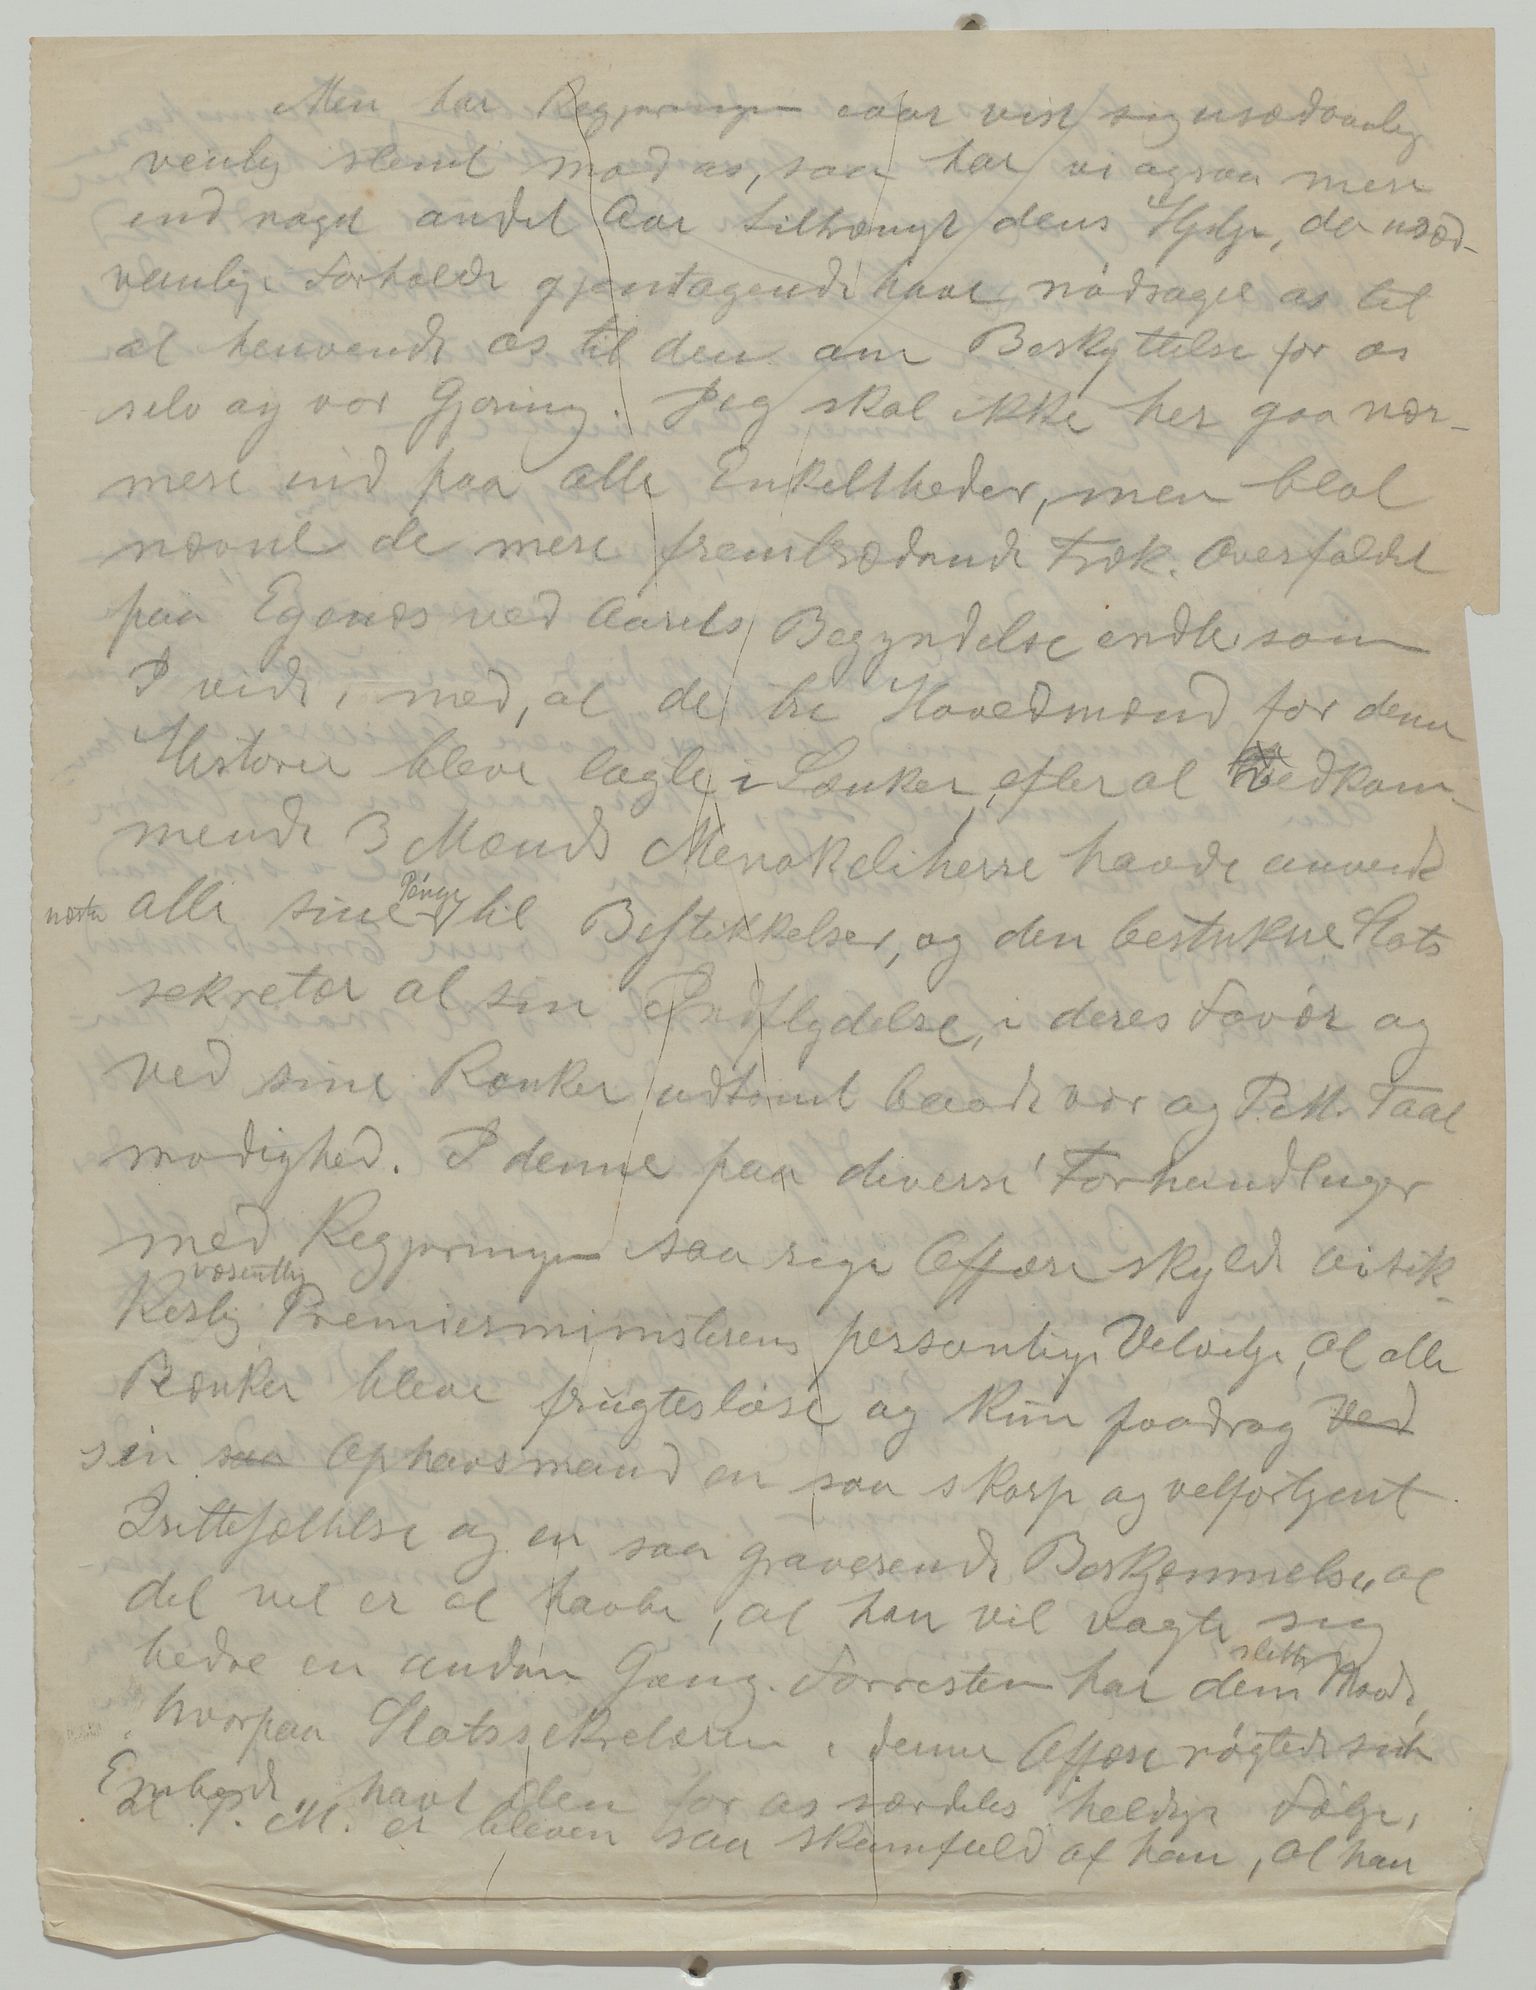 Men har Regjeringen iaar vist sig usædvanlig
venlig stemt mod os, saa har vi ogsaa mere
end noget andet Aar tiltrængt dens Hjelp, da usæd-
vanlige Forholde gjentagende have nødsaget os til
at henvende os til den om Beskyttelse for os
selv og vor Gjerning. Jeg skal ikke her gaa nær-
mere ind paa alle Enkeltheder, men blot
nævne de mere fremtrædende Træk. Overfaldet
paa Egenæs ved Aarets Begyndelse endte som
I vide, med, at de tre Hovedmænd for denne
Historie bleve lagte i Lænker, efter at Vedkom-
mende 3 Mænds Menakeliherre havde anvendt
næsten alle sine Penge til Bestikkelser, og den bestukne Stats
sekretær al sin Indflydelse, i deres Favør og
ved sine Rænker udtømt baade vor og P.M. Taal
modighed. I denne paa diverse Forhandlinger
med Regjeringen saa rige Affære skylde vi sik-
væsentlig
kerlig Premierministerens personlige Velvilje, at alle
Rænker bleve frugtesløse og kun paadrog ved
sin saa Ophavsmand en saa skarp og velfortjent
Irettesættelse og en saa graverende Beskjæmmelse, at
det vel er at haabe, at han vil vogte sig
bedre en anden Gang. Forresten har den slette Maade,
hvorpaa Statssekretæren i denne Affære røgtede sit
Embede, havt den for os særdeles heldige Følge,
at P. M. er bleven saa skamfuld af ham, at han